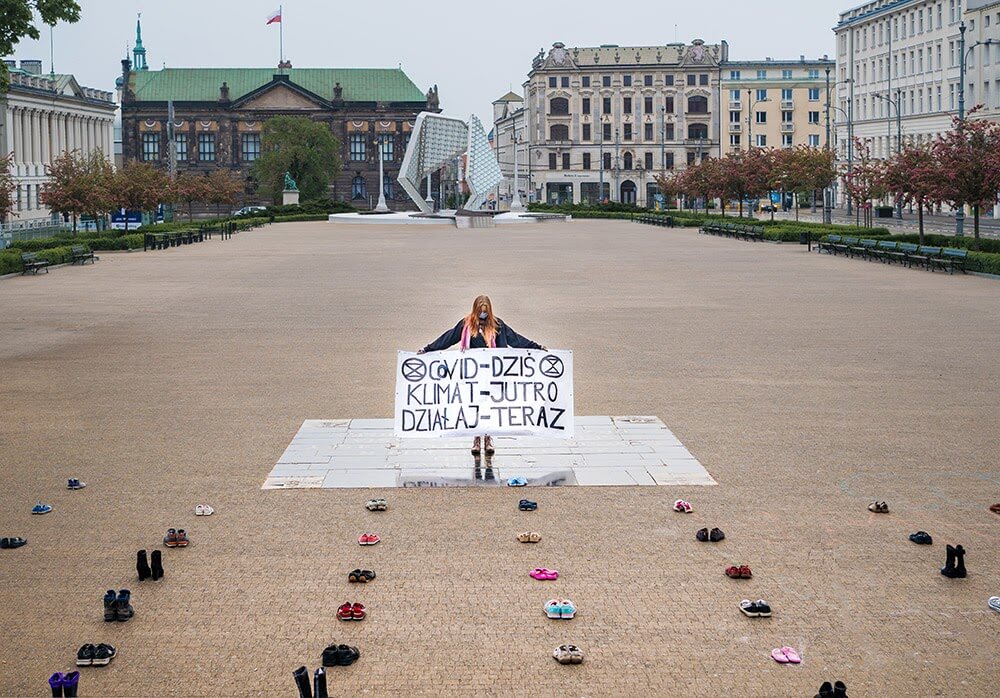 COVID-DZIŚ
KLIMAT-JUTRO
DZIAŁAJ-TERAZ